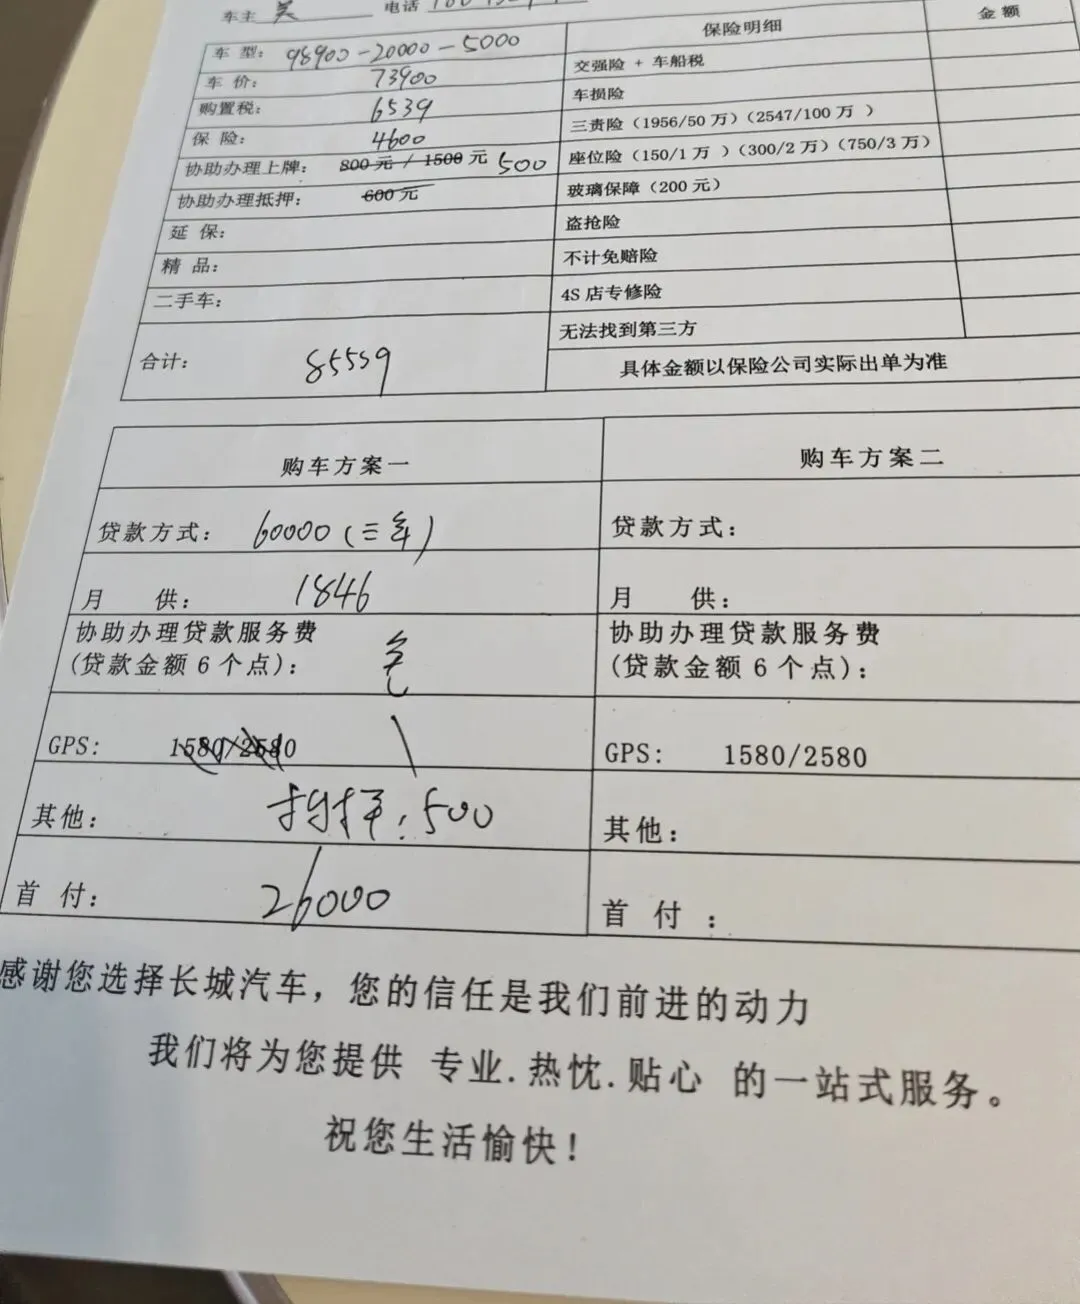 车主 吴 电话
车 型： 98900-20000-5000
车 价： 73900
购置税： 6539
保 险： 4600
协助办理上牌： 800 元 / 1500 元 500
协助办理抵押： 600 元
延 保：
精 品：
二手车：
合计： 85539
保险明细 金 额
交强险 + 车船税
车损险
三责险（1956/50 万）（2547/100 万 ）
座位险（150/1 万 ）（300/2 万）（750/3 万）
玻璃保障（200 元）
盗抢险
不计免赔险
4S 店专修险
无法找到第三方
具体金额以保险公司实际出单为准
购车方案一
贷款方式： 60000（三年）
月 供： 1846
协助办理贷款服务费
(贷款金额 6 个点)：
GPS: 1580/2580
其他： 抵押：500
首 付： 26000
购车方案二
贷款方式：
月 供：
协助办理贷款服务费
(贷款金额 6 个点)：
GPS: 1580/2580
其他：
首 付 ：
感谢您选择长城汽车，您的信任是我们前进的动力
我们将为您提供 专业.热忱.贴心 的一站式服务。
祝您生活愉快！